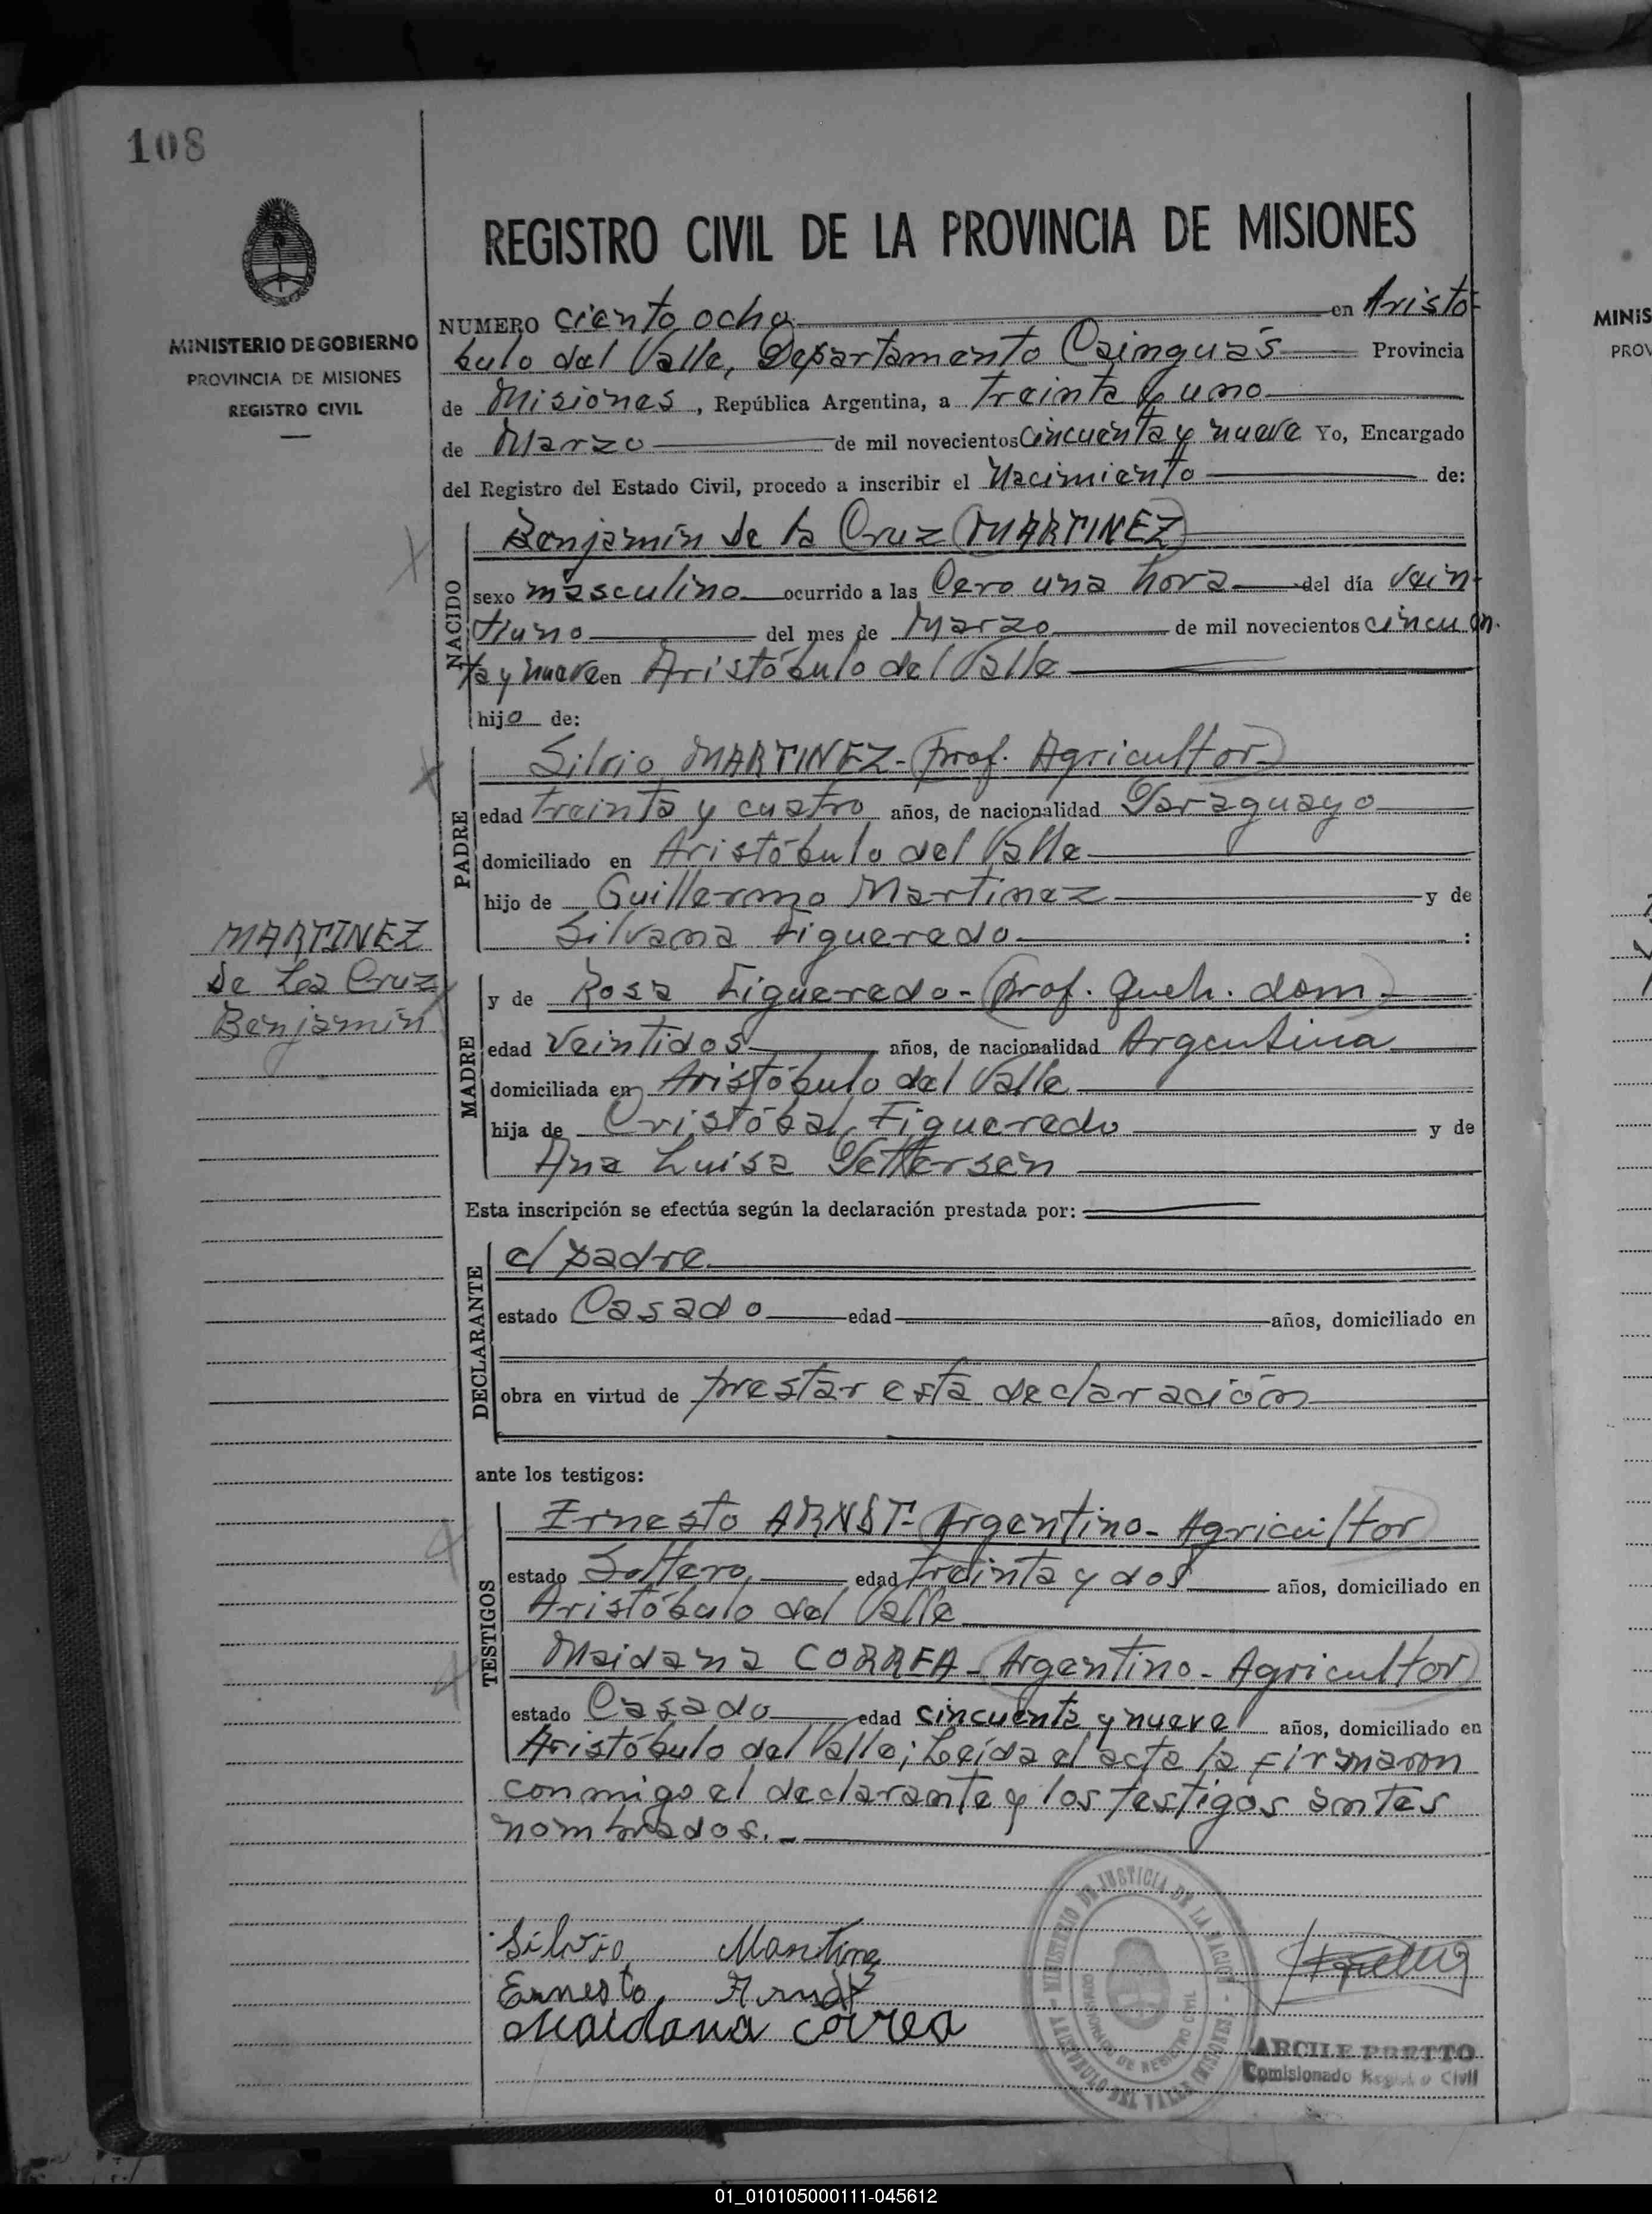 108
MINISTERIO DE GOBIERNO
PROVINCIA DE MISIONES
REGISTRO CIVIL
REGISTRO CIVIL DE LA PROVINCIA DE MISIONES
NUMERO ciento ocho en Aristó-
bulo del Valle, Departamento Cainguás Provincia
de Misiones, República Argentina, a treinta y uno
de Marzo de mil novecientos cincuenta y nueve Yo, Encargado
del Registro del Estado Civil, procedo a inscribir el Nacimiento de:
NACIDO
Benjamín de la Cruz (MARTINEZ)
sexo masculino ocurrido a las Cero una hora del día vein-
tiuno del mes de Marzo de mil novecientos cincuen-
ta y nueve en Aristóbulo del Valle
hijo de:
PADRE
Silvio MARTINEZ - (prof. Agricultor)
edad treinta y cuatro años, de nacionalidad Paraguayo
domiciliado en Aristóbulo del Valle
hijo de Guillermo Martinez y de
Silvana Figueredo :
MARTINEZ
De La Cruz
Benjamín
MADRE
y de Rosa Figueredo - (prof. Queh. dom)
edad Veintidos años, de nacionalidad Argentina
domiciliada en Aristóbulo del Valle
hija de Cristóbal Figueredo y de
Ana Luisa Pettersen
Esta inscripción se efectúa según la declaración prestada por:
DECLARANTE
el padre
estado Casado edad años, domiciliado en
obra en virtud de prestar esta declaración
ante los testigos:
TESTIGOS
Ernesto ARNDT - Argentino - Agricultor
estado Soltero edad treinta y dos años, domiciliado en
Aristóbulo del Valle
Maidana CORREA - Argentino - Agricultor
estado Casado edad cincuenta y nueve años, domiciliado en
Aristóbulo del Valle; Leída el acta la firmaron
conmigo el declarante y los testigos antes
nombrados. -
Silvio Martinez
Ernesto Arndt
Maidana Correa
MINISTERIO DE JUSTICIA DE LA NACION
ARISTOBULO DEL VALLE (MISIONES)
COMISIONADO DE REGISTRO CIVIL
ARCILE PRETTO
Comisionado Registro Civil
MINIS
PROV
01_010105000111-045612